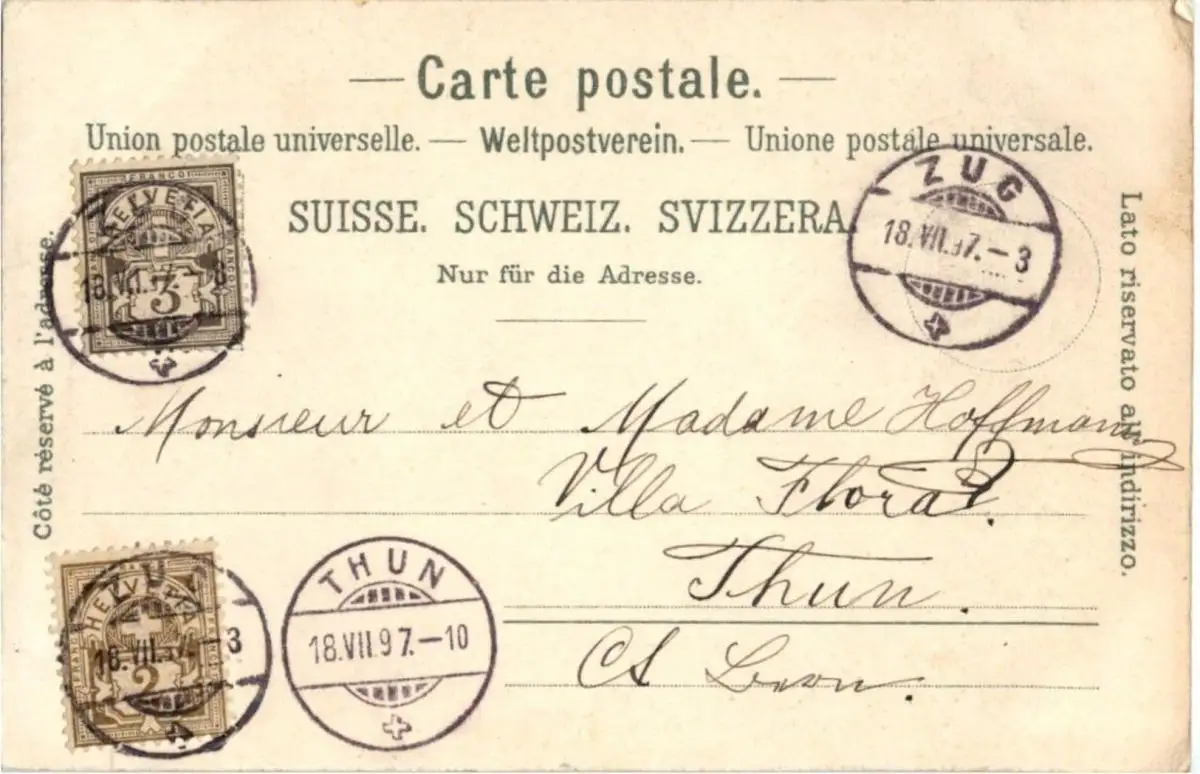 Carte postale.
Union postale universelle. — Weltpostverein. — Unione postale universale.
SUISSE. SCHWEIZ. SVIZZERA.
Nur für die Adresse.
Côté réservé à l'adresse.
Lato riservato all'indirizzo.
FRANCO
HELVETIA
3
18.VII.97.-3
ZUG
18.VII.97.-3
Monsieur et Madame Hoffmann
Villa Flora.
Thun.
Ct Bern.
ZUG
HELVETIA
18.VII.97.-3
2
THUN
18.VII.97.-10